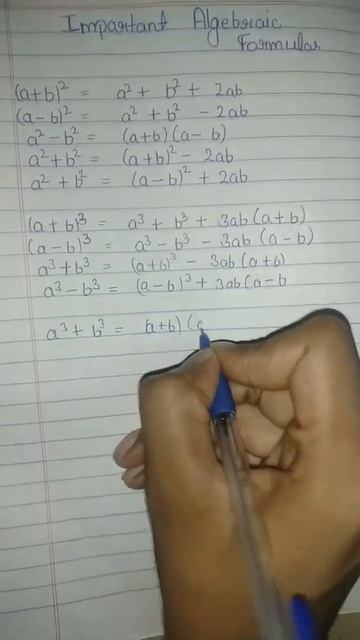 Impartant Algebraic
Formular
(a+b)² = a² + b² + 2ab
(a-b)² = a² + b² - 2ab
a² - b² = (a+b) (a-b)
a² + b² = (a+b)² - 2ab
a² + b² = (a-b)² + 2ab
(a+b)³ = a³ + b³ + 3ab (a+b)
(a-b)³ = a³ - b³ - 3ab (a-b)
a³+b³ = (a+b)³ - 3ab (a+b)
a³-b³ = (a-b)³ + 3ab (a-b
a³ + b³ = (a+b) (a